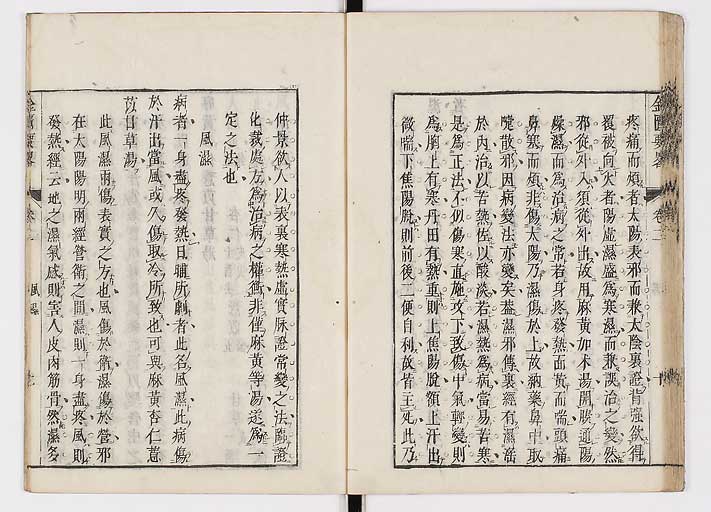 疼痛而煩者太陽表邪而兼太陰裏證背強欲得
覆被向火者陽虛濕盛爲寒濕而兼談治之變然
邪從外入須從外出故用麻黃加朮湯開腠通陽
燥濕而爲治病之常若身疼發熱面黃而喘頭痛
鼻塞而煩非傷太陽乃濕傷於上故納藥鼻中取
嚏散邪因病變法亦變矣蓋濕邪傳裏經有濕淫
於內治以苦熱佐以酸淡若濕熱爲病當易苦寒
是爲正法不似傷寒直施攻下致傷中氣轉變則
爲胸上有寒丹田有熱重則上焦陽脫額上汗出
微喘下焦陽脫則前後二便自利故皆主死此乃
仲景欲人以表裏寒熱虛實脉證常變之法隨證
化裁處方爲治病之權衡非僅麻黃等湯遂爲一
定之法也
風濕
病者一身盡疼發熱日晡所劇者此名風濕此病傷
於汗出當風或久傷取冷所致也可與麻黃杏仁薏
苡甘草湯
此風濕兩傷表實之方也風傷於衛濕傷於營邪
在太陽陽明兩經營衛之間濕則一身盡疼風則
發熱經云地之濕氣感則害人皮肉筋骨然濕多
金匱要畧
卷二
風濕